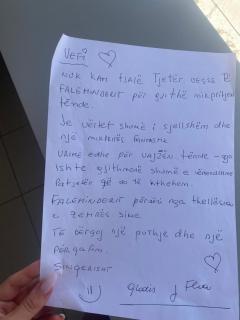 VERI
NUK KAM FJALË TJETËR VEÇSE TË
FALEMINDERIT PËR GJITHË MIKPRITJEN
TËNDE.
JE VËRTET SHUMË I SJELLSHËM DHE
NJË MIKPRITËS
URIME EDHE PËR VAJZËN TËNDE - QË
ISHTE GJITHMONË SHUMË E VËMENDSHME
PATJETËR QË DO TË KTHEHEM.
FALEMINDERIT PËRSËRI NGA THELLËSIA
E ZEMRËS SIME
TË DËRGOJ NJË PUTHJE DHE NJË
PËRQAFIM.
SINQERISHT